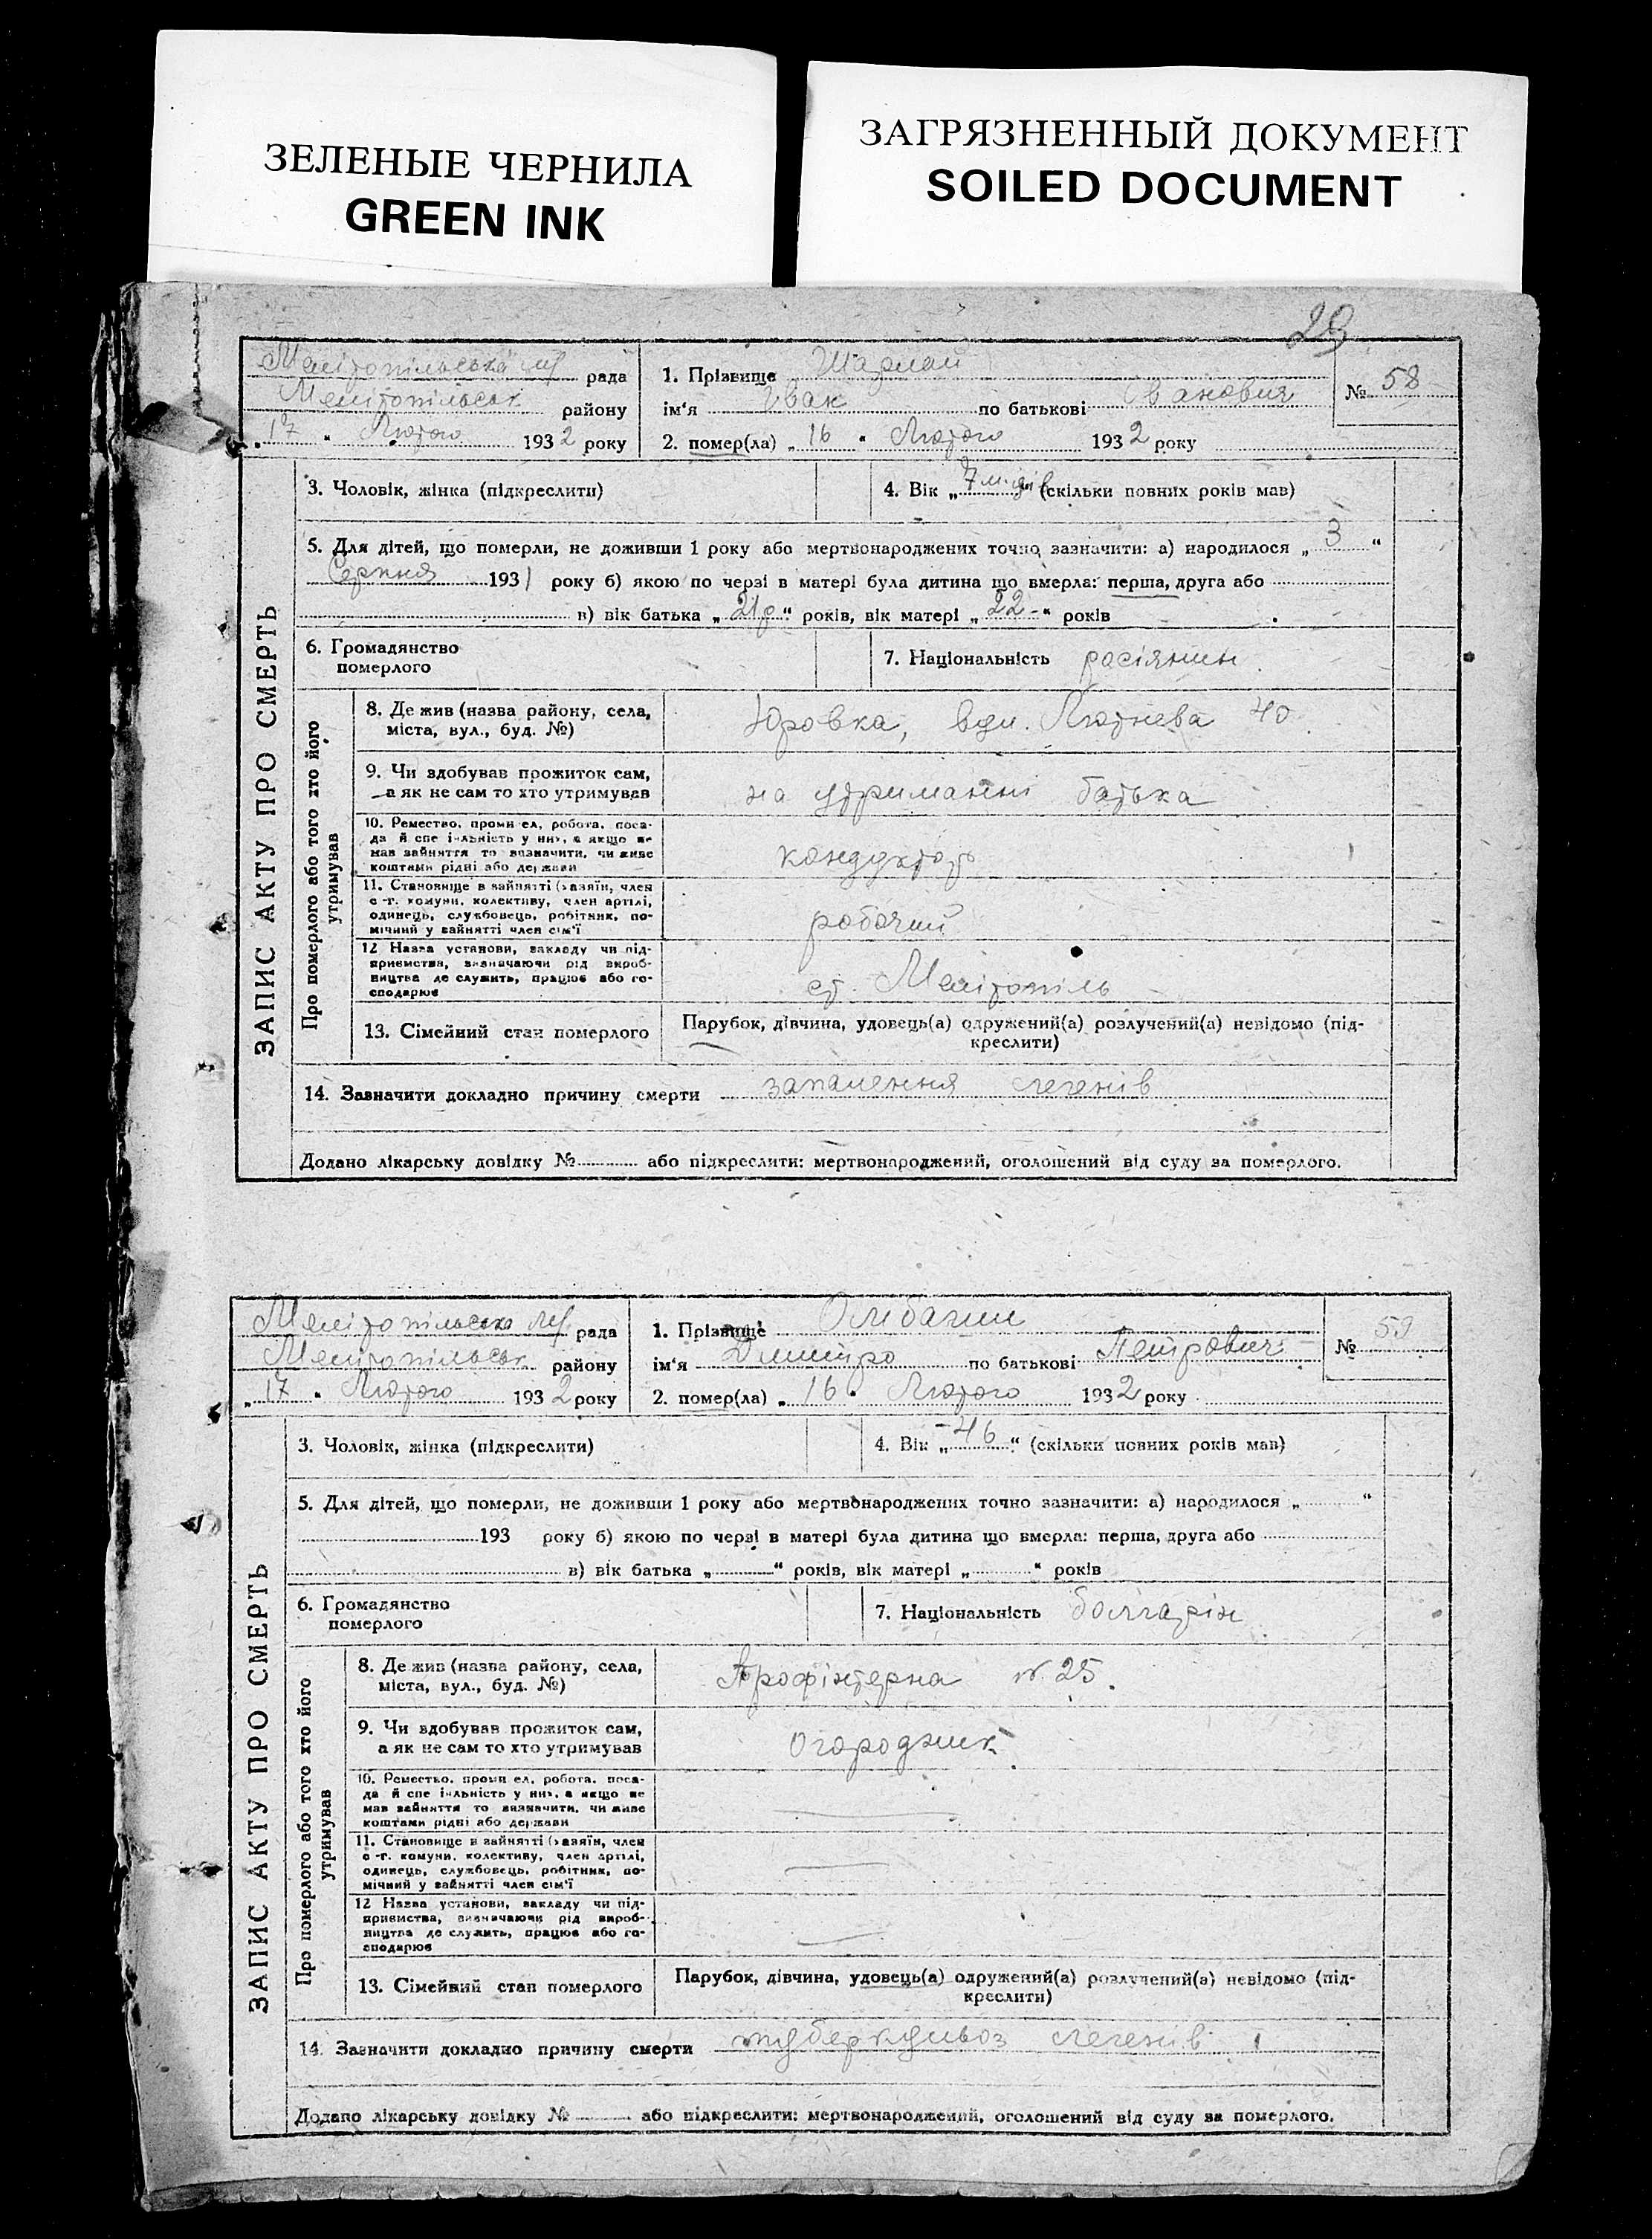 ЗЕЛЕНЫЕ ЧЕРНИЛА
GREEN INK
ЗАГРЯЗНЕННЫЙ ДОКУМЕНТ
SOILED DOCUMENT
29
Мелітопільська м/р рада
Мелітопільськ району
„ 17 “ Лютого 1932 року
1. Прізвище Шарлай
ім‘я Іван по батькові Іванович
2. помер(ла) „ 16 “ Лютого 1932 року
№ 58
ЗАПИС АКТУ ПРО СМЕРТЬ
3. Чоловік, жінка (підкреслити)
4. Вік „ 7 м. “ (скільки повних років мав)
5. Для дітей, що померли, не доживши 1 року або мертвонароджених точно зазначити: а) народилося „ 3 “
Серпня 1931 року б) якою по черзі в матері була дитина що вмерла: перша, друга або
в) вік батька „ 21 р “ років, вік матері „ 22 - “ років
6. Громадянство
померлого
7. Національність росіянин
Про померлого або того хто його
утримував
8. Де жив (назва району, села,
міста, вул., буд. №)
Юровка, вул. Лютнева 40
9. Чи здобував прожиток сам,
а як не сам то хто утримував
на утриманні батька
10. Ремество, промисел, робота, поса-
да й спеціяльність у них, а якщо не
мав зайняття то визначити, чи живе
коштами рідні або держави
кондуктор
11. Становище в зайнятті (хазяїн, член
с.-г. комуни, колективу, член артілі,
одинець, службовець, робітник, по-
мічний у зайнятті член сім‘ї
робочий
12 Назва установи, закладу чи під-
приємства, визначаючи рід вироб-
ництва де служить, працює або го-
сподарює
ст. Мелітопіль
13. Сімейний стан померлого
Парубок, дівчина, удовець(а) одружений(а) розлучений(а) невідомо (під-
креслити)
14. Зазначити докладно причину смерти запалення легенів
Додано лікарську довідку № або підкреслити: мертвонароджений, оголошений від суду за померлого.
Мелітопільська м/р. рада
Мелітопільськ району
„ 17 “ Лютого 1932 року
1. Прізвище
ім‘я Дмитро по батькові Петрович
2. помер(ла) „ 16 “ Лютого 1932 року
№ 59
ЗАПИС АКТУ ПРО СМЕРТЬ
3. Чоловік, жінка (підкреслити)
4. Вік „ 46 “ (скільки повних років мав)
5. Для дітей, що померли, не доживши 1 року або мертвонароджених точно зазначити: а) народилося „ “
193 року б) якою по черзі в матері була дитина що вмерла: перша, друга або
в) вік батька „ “ років, вік матері „ “ років
6. Громадянство
померлого
7. Національність болгарін
Про померлого або того хто його
утримував
8. Де жив (назва району, села,
міста, вул., буд. №)
Профінтерна № 25.
9. Чи здобував прожиток сам,
а як не сам то хто утримував
огородник
10. Ремество, промисел, робота, поса-
да й спеціяльність у них, а якщо не
мав зайняття то визначити, чи живе
коштами рідні або держави
11. Становище в зайнятті (хазяїн, член
с.-г. комуни, колективу, член артілі,
одинець, службовець, робітник, по-
мічний у зайнятті член сім‘ї
12 Назва установи, закладу чи під-
приємства, визначаючи рід вироб-
ництва де служить, працює або го-
сподарює
13. Сімейний стан померлого
Парубок, дівчина, удовець(а) одружений(а) розлучений(а) невідомо (під-
креслити)
14. Зазначити докладно причину смерти туберкульоз легенів
Додано лікарську довідку № або підкреслити: мертвонароджений, оголошений від суду за померлого.